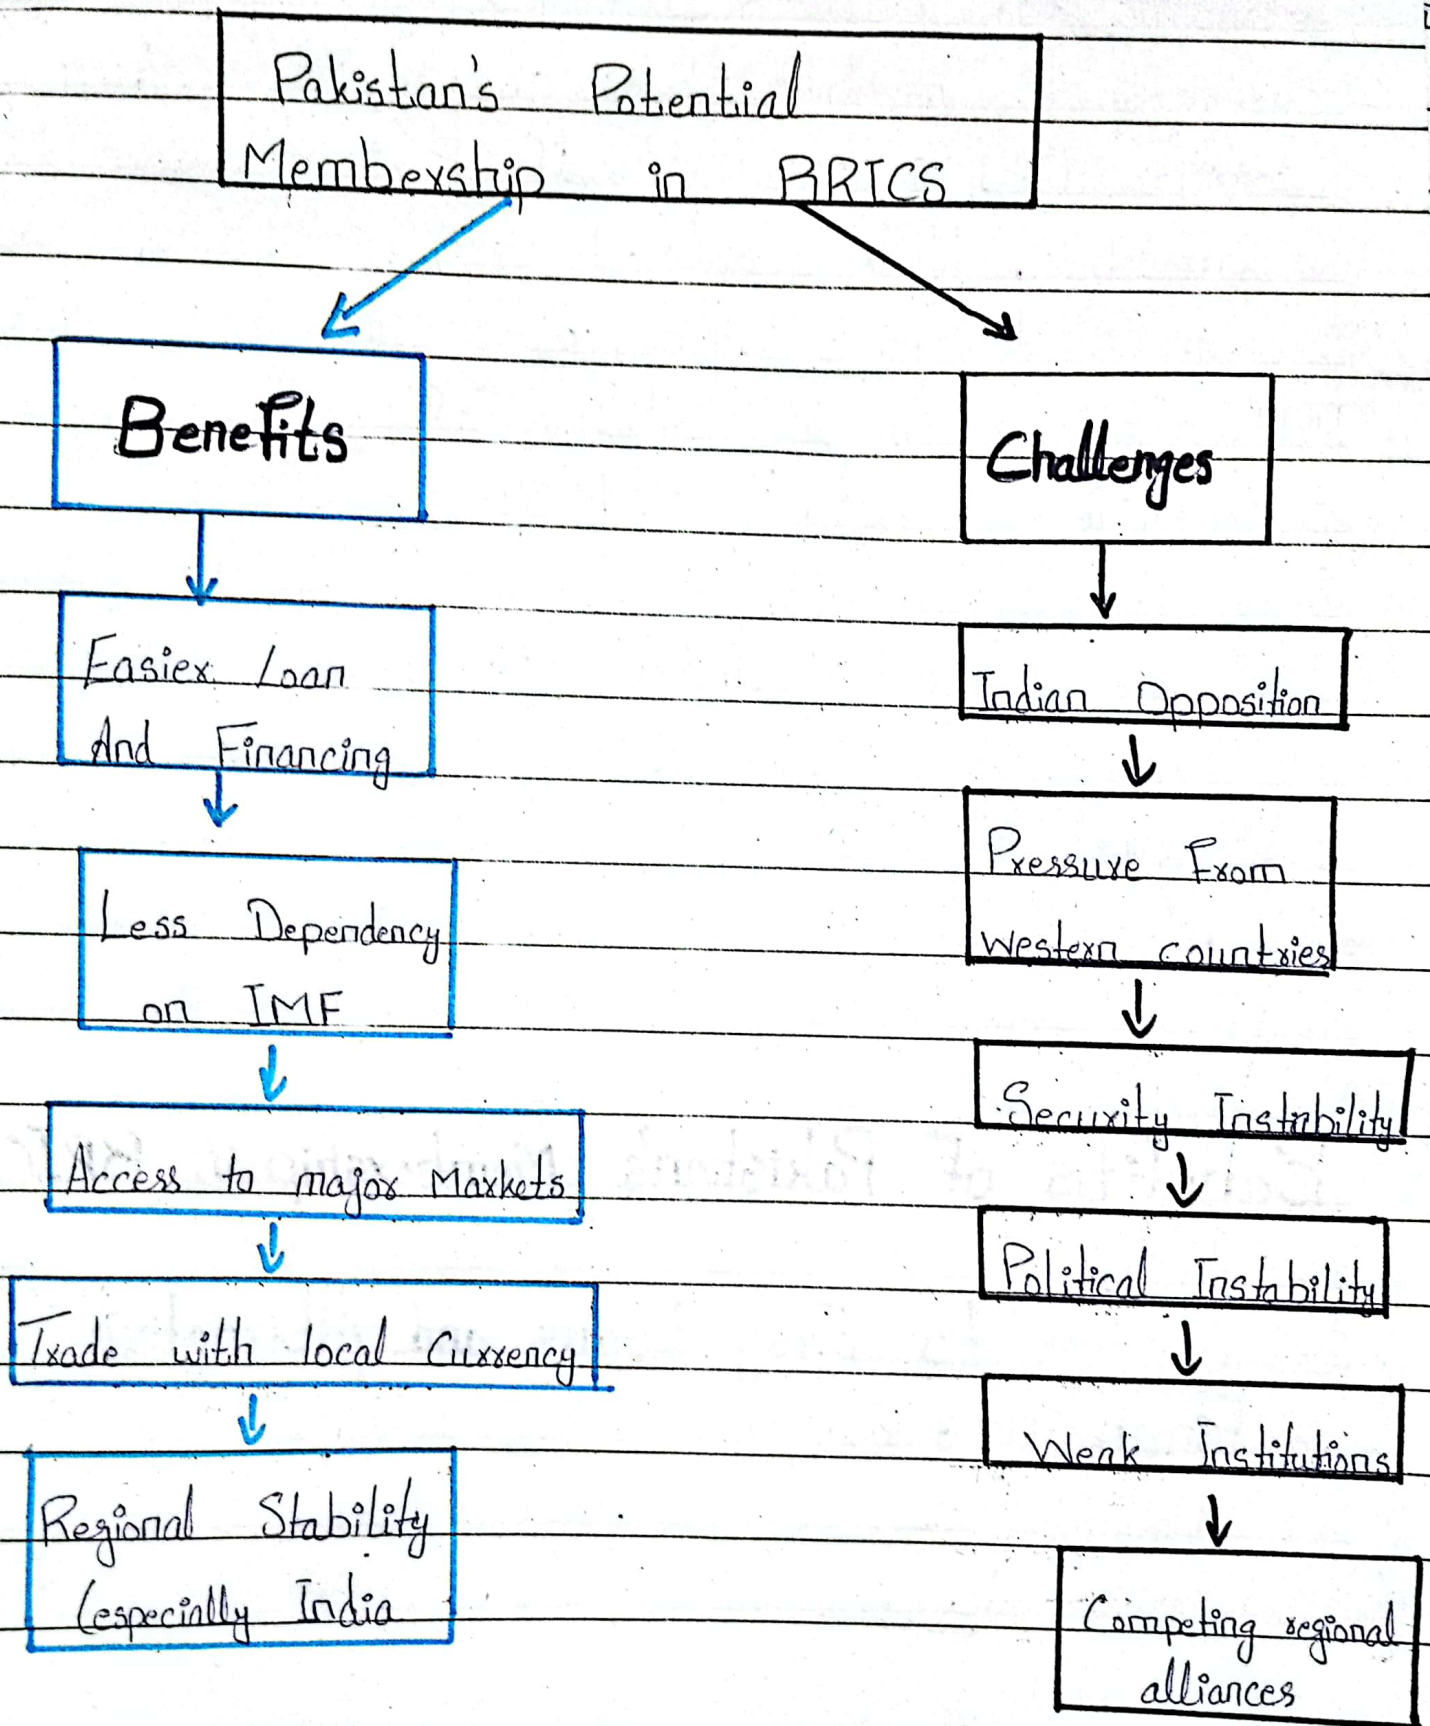 Pakistan's Potential
Membership in BRICS
Benefits
Easier Loan
And Financing
Less Dependency
on IMF
Access to major Markets
Trade with local Currency
Regional Stability
(especially India
Challenges
Indian Opposition
Pressure From
Western countries
Security Instability
Political Instability
Weak Institutions
Competing regional
alliances